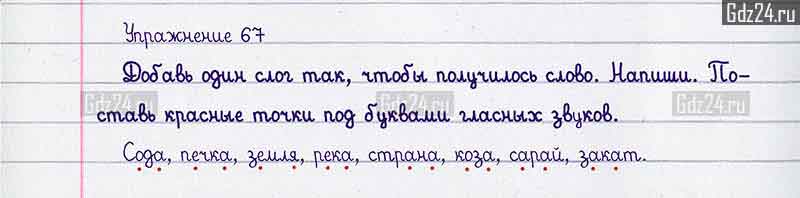 Gdz24.ru
Упражнение 67
Добавь один слог так, чтобы получилось слово. Напиши. По-
Gdz24.ru Gdz24.ru
ставь красные точки под буквами гласных звуков.
Сода, печка, земля, река, страна, коза, сарай, закат.